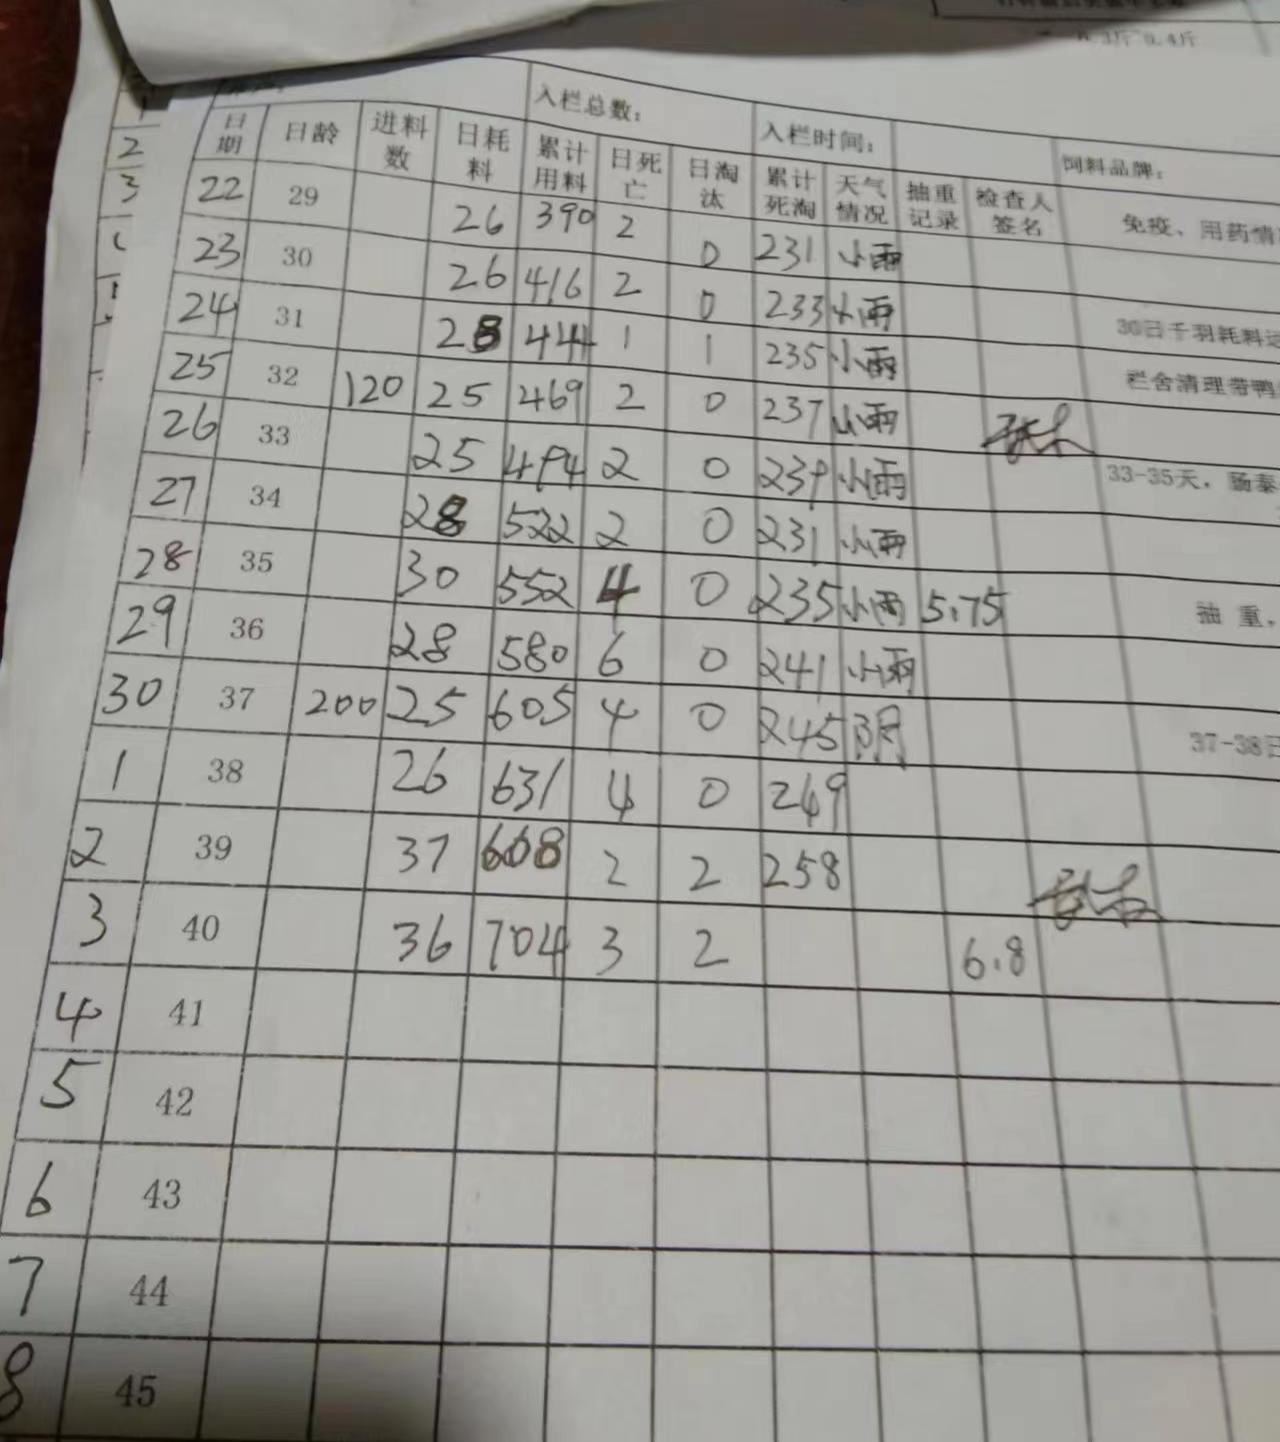 0.3斤 0.4斤
入栏总数： 入栏时间： 饲料品牌：
日期 日龄 进料数 日耗料 累计用料 日死亡 日淘汰 累计死淘 天气情况 抽重记录 检查人签名 免疫、用药情
22 29 26 390 2 0 231 小雨
23 30 26 416 2 0 233 小雨 30日千羽耗料
24 31 28 444 1 1 235 小雨 栏舍清理带鸭
25 32 120 25 469 2 0 237 小雨
26 33 25 494 2 0 239 小雨 33-35天，肠泰
27 34 28 522 2 0 231 小雨
28 35 30 552 4 0 235 小雨 5.75 抽重，
29 36 28 580 6 0 241 小雨
30 37 200 25 605 4 0 245 阴 37-38日
1 38 26 631 4 0 249
2 39 37 668 2 2 258
3 40 36 704 3 2 6.8
4 41
5 42
6 43
7 44
8 45